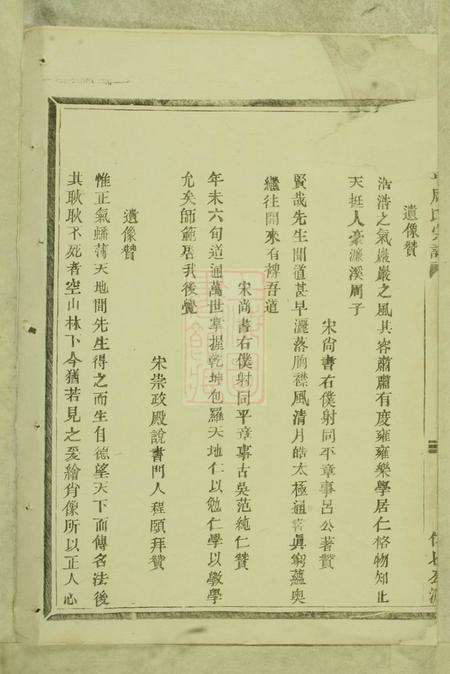 周氏宗譜
遺像贊
浩浩之氣巖巖之風其容肅肅有度雍雍樂學居仁格物知止
天挺人豪濂溪周子
宋尚書右僕射同平章事呂公著贊
賢哉先生聞道甚早灑落胸襟風清月皓太極通書眞窮蘊奧
繼往開來有裨吾道
宋尚書右僕射同平章事古吳范純仁贊
年未六旬道通萬世掌握乾坤包羅天地仁以勉仁學以斆學
允矣師範启我後覺
宋崇政殿說書門人程頤拜贊
遺像贊
惟正氣蟠薄天地間先生得之而生自德望天下而傳名法後
其耿耿不死者空山林下今猶若見之爰繪肖像所以正人心